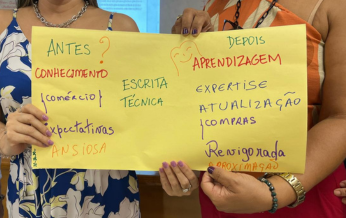 ANTES ?
CONHECIMENTO
{comércio}
Expectativas
ANSIOSA
ESCRITA
TÉCNICA
DEPOIS
APRENDIZAGEM
EXPERTISE
ATUALIZAÇÃO
{COMPRAS
Revigorada
APROXIMAÇÃO